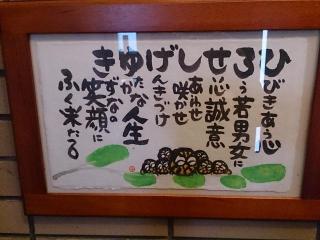 ひびきあう心
ろう若男女に
せい心誠意
しあわせ咲かせ
げんきづけ
ゆたかな人生
きずなの笑顔に
ふく来たる